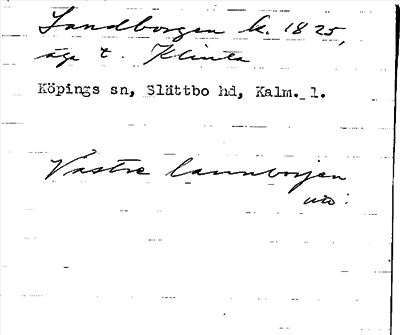 Sandborgen k. 1825,
äga t. Klinta
Köpings sn, Slättbo hd, Kalm. l.
Västre lannborjen
uto: